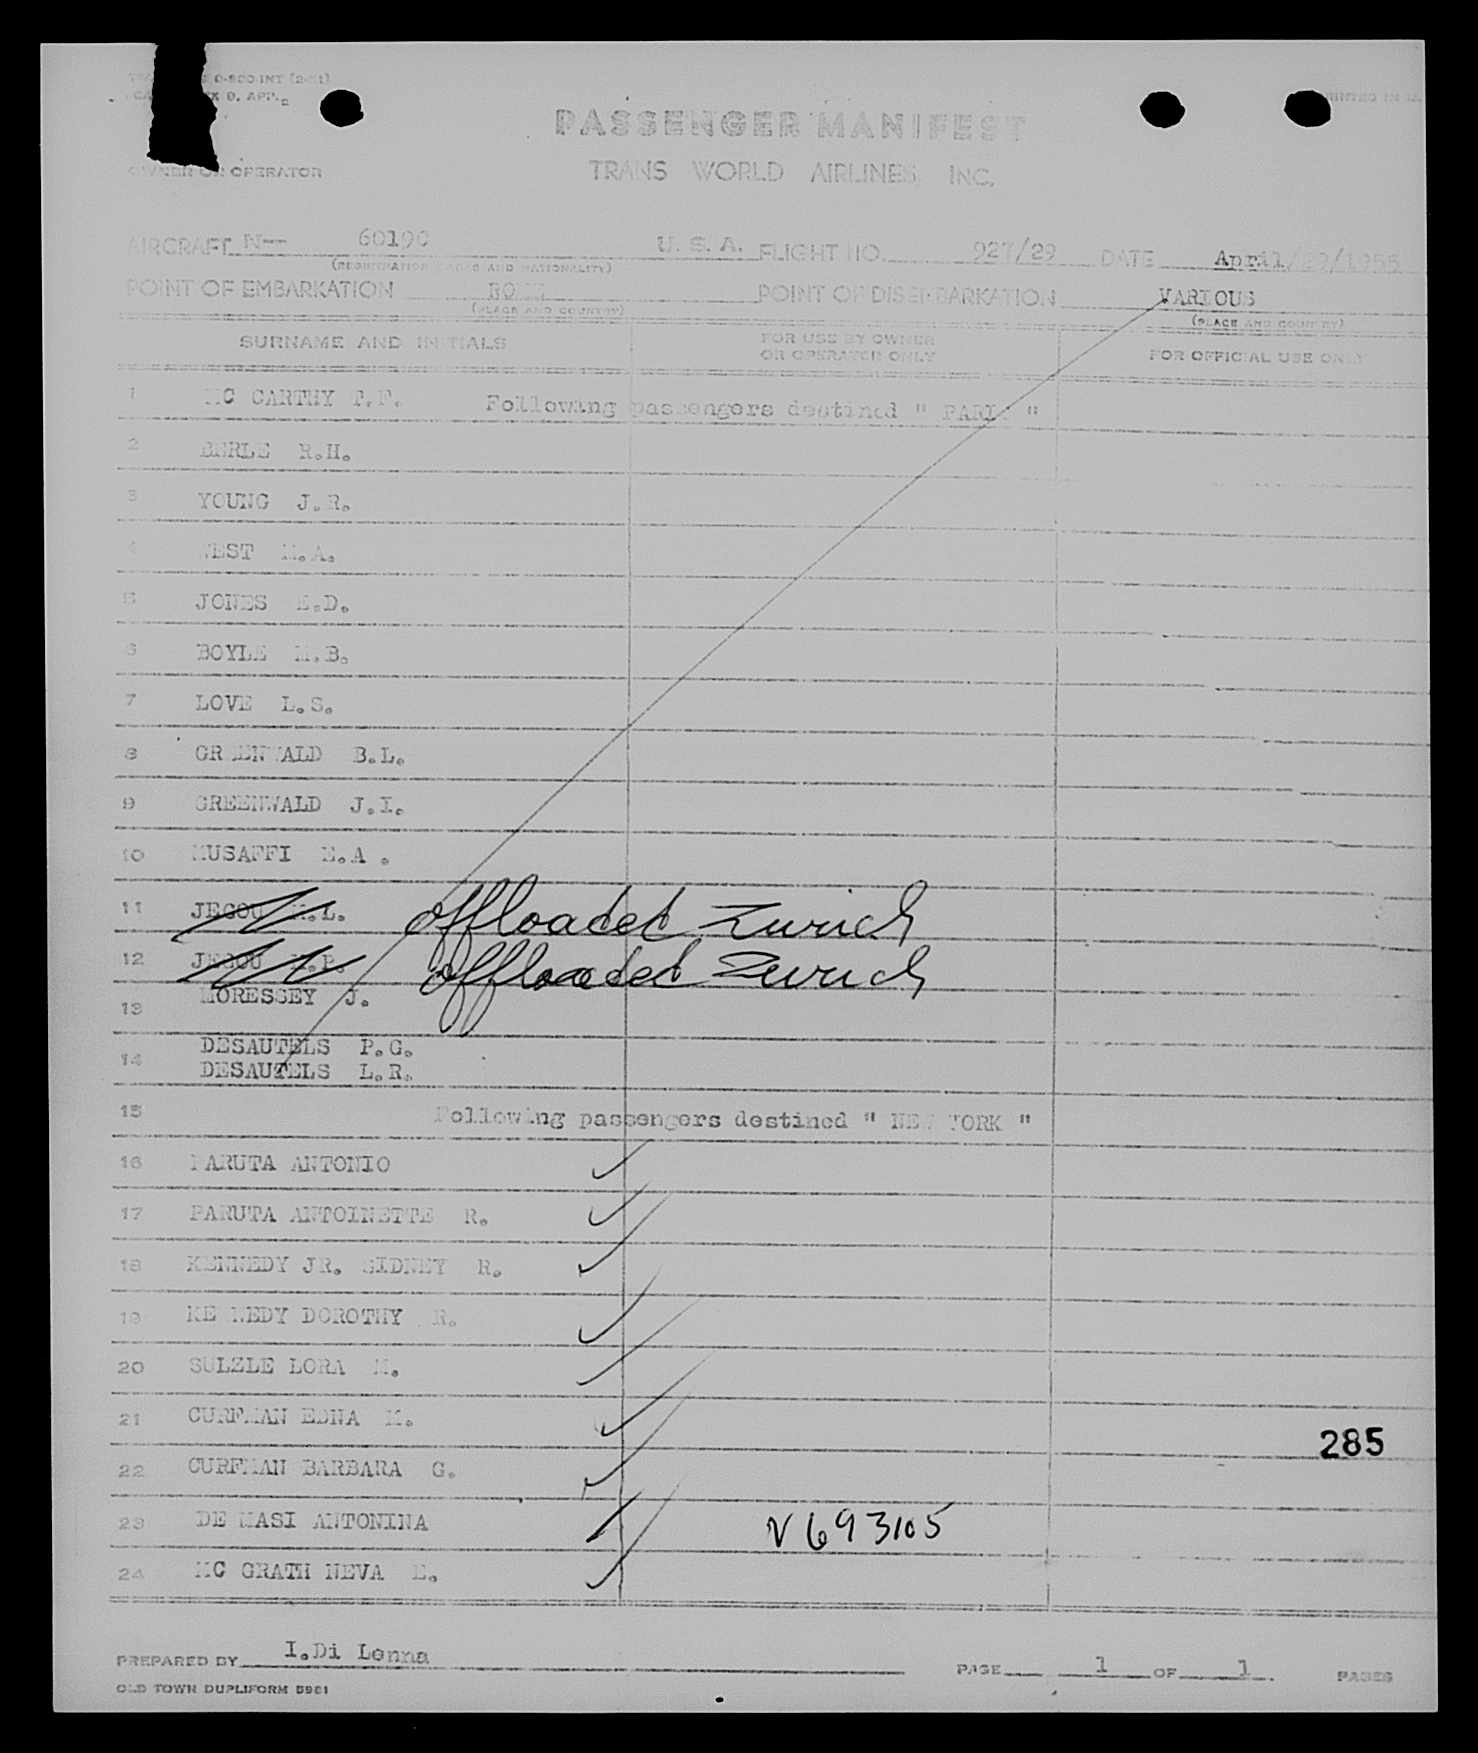 0-500-INT (2-51)
D. APP.
PRINTED IN U.
PASSENGER MANIFEST
OWNER OR OPERATOR
TRANS WORLD AIRLINES, INC.
AIRCRAFT N-- 60190 U. S. A. FLIGHT NO. 927/29 DATE April/29/1955
(REGISTRATION MARKS AND NATIONALITY)
POINT OF EMBARKATION ROME POINT OF DISEMBARKATION VARIOUS
(PLACE AND COUNTRY) (PLACE AND COUNTRY)
SURNAME AND INITIALS FOR USE BY OWNER OR OPERATOR ONLY FOR OFFICIAL USE ONLY
1 MC CARTHY T.F. Following passengers destined " PARIS "
2 BERLE R.H.
3 YOUNG J.R.
4 WEST M.A.
5 JONES E.D.
6 BOYLE M.B.
7 LOVE L.S.
8 GREENWALD B.L.
9 GREENWALD J.I.
10 MUSAFFI E.A .
11 JEGOU M.L. offloaded Zurich
12 JEGOU .P. offloaded Zurich
13 MORESSEY J.
14 DESAUTELS P.G.
DESAUTELS L.R.
15 Following passengers destined " NEW YORK "
16 PARUTA ANTONIO
17 PARUTA ANTOINETTE R.
18 KENNEDY JR. SIDNEY R.
19 KENNEDY DOROTHY R.
20 SULZLE LORA M.
21 CURFMAN EDNA M.
285
22 CURFMAN BARBARA G.
23 DE MASI ANTONINA V 693105
24 MC GRATH NEVA E.
PREPARED BY I.Di Lenna PAGE 1 OF 1 PAGES
OLD TOWN DUPLIFORM 5981